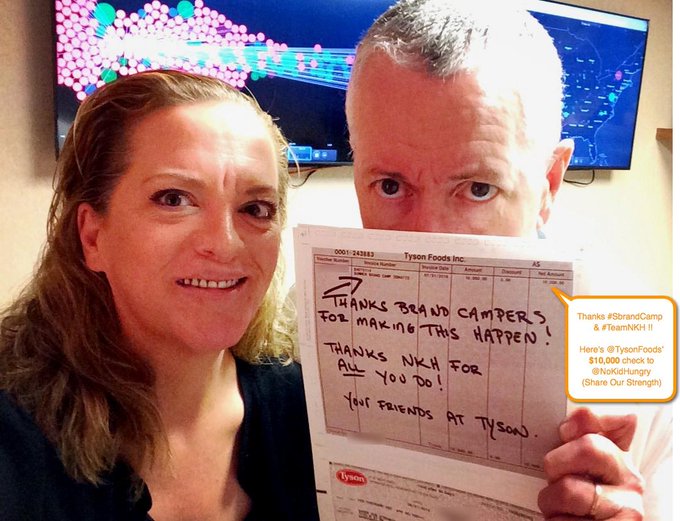 0001-243883 Tyson Foods Inc. A5
Voucher Number Invoice Number Invoice Date Amount Discount Net Amount
SUMMER BRAND CAMP DONATIO
THANKS BRAND CAMPERS
FOR MAKING THIS HAPPEN!
THANKS NKH FOR
ALL YOU DO!
YOUR FRIENDS AT TYSON.
Tyson
Thanks #SbrandCamp
& #TeamNKH !!
Here's @TysonFoods'
$10,000 check to
@NoKidHungry
(Share Our Strength)